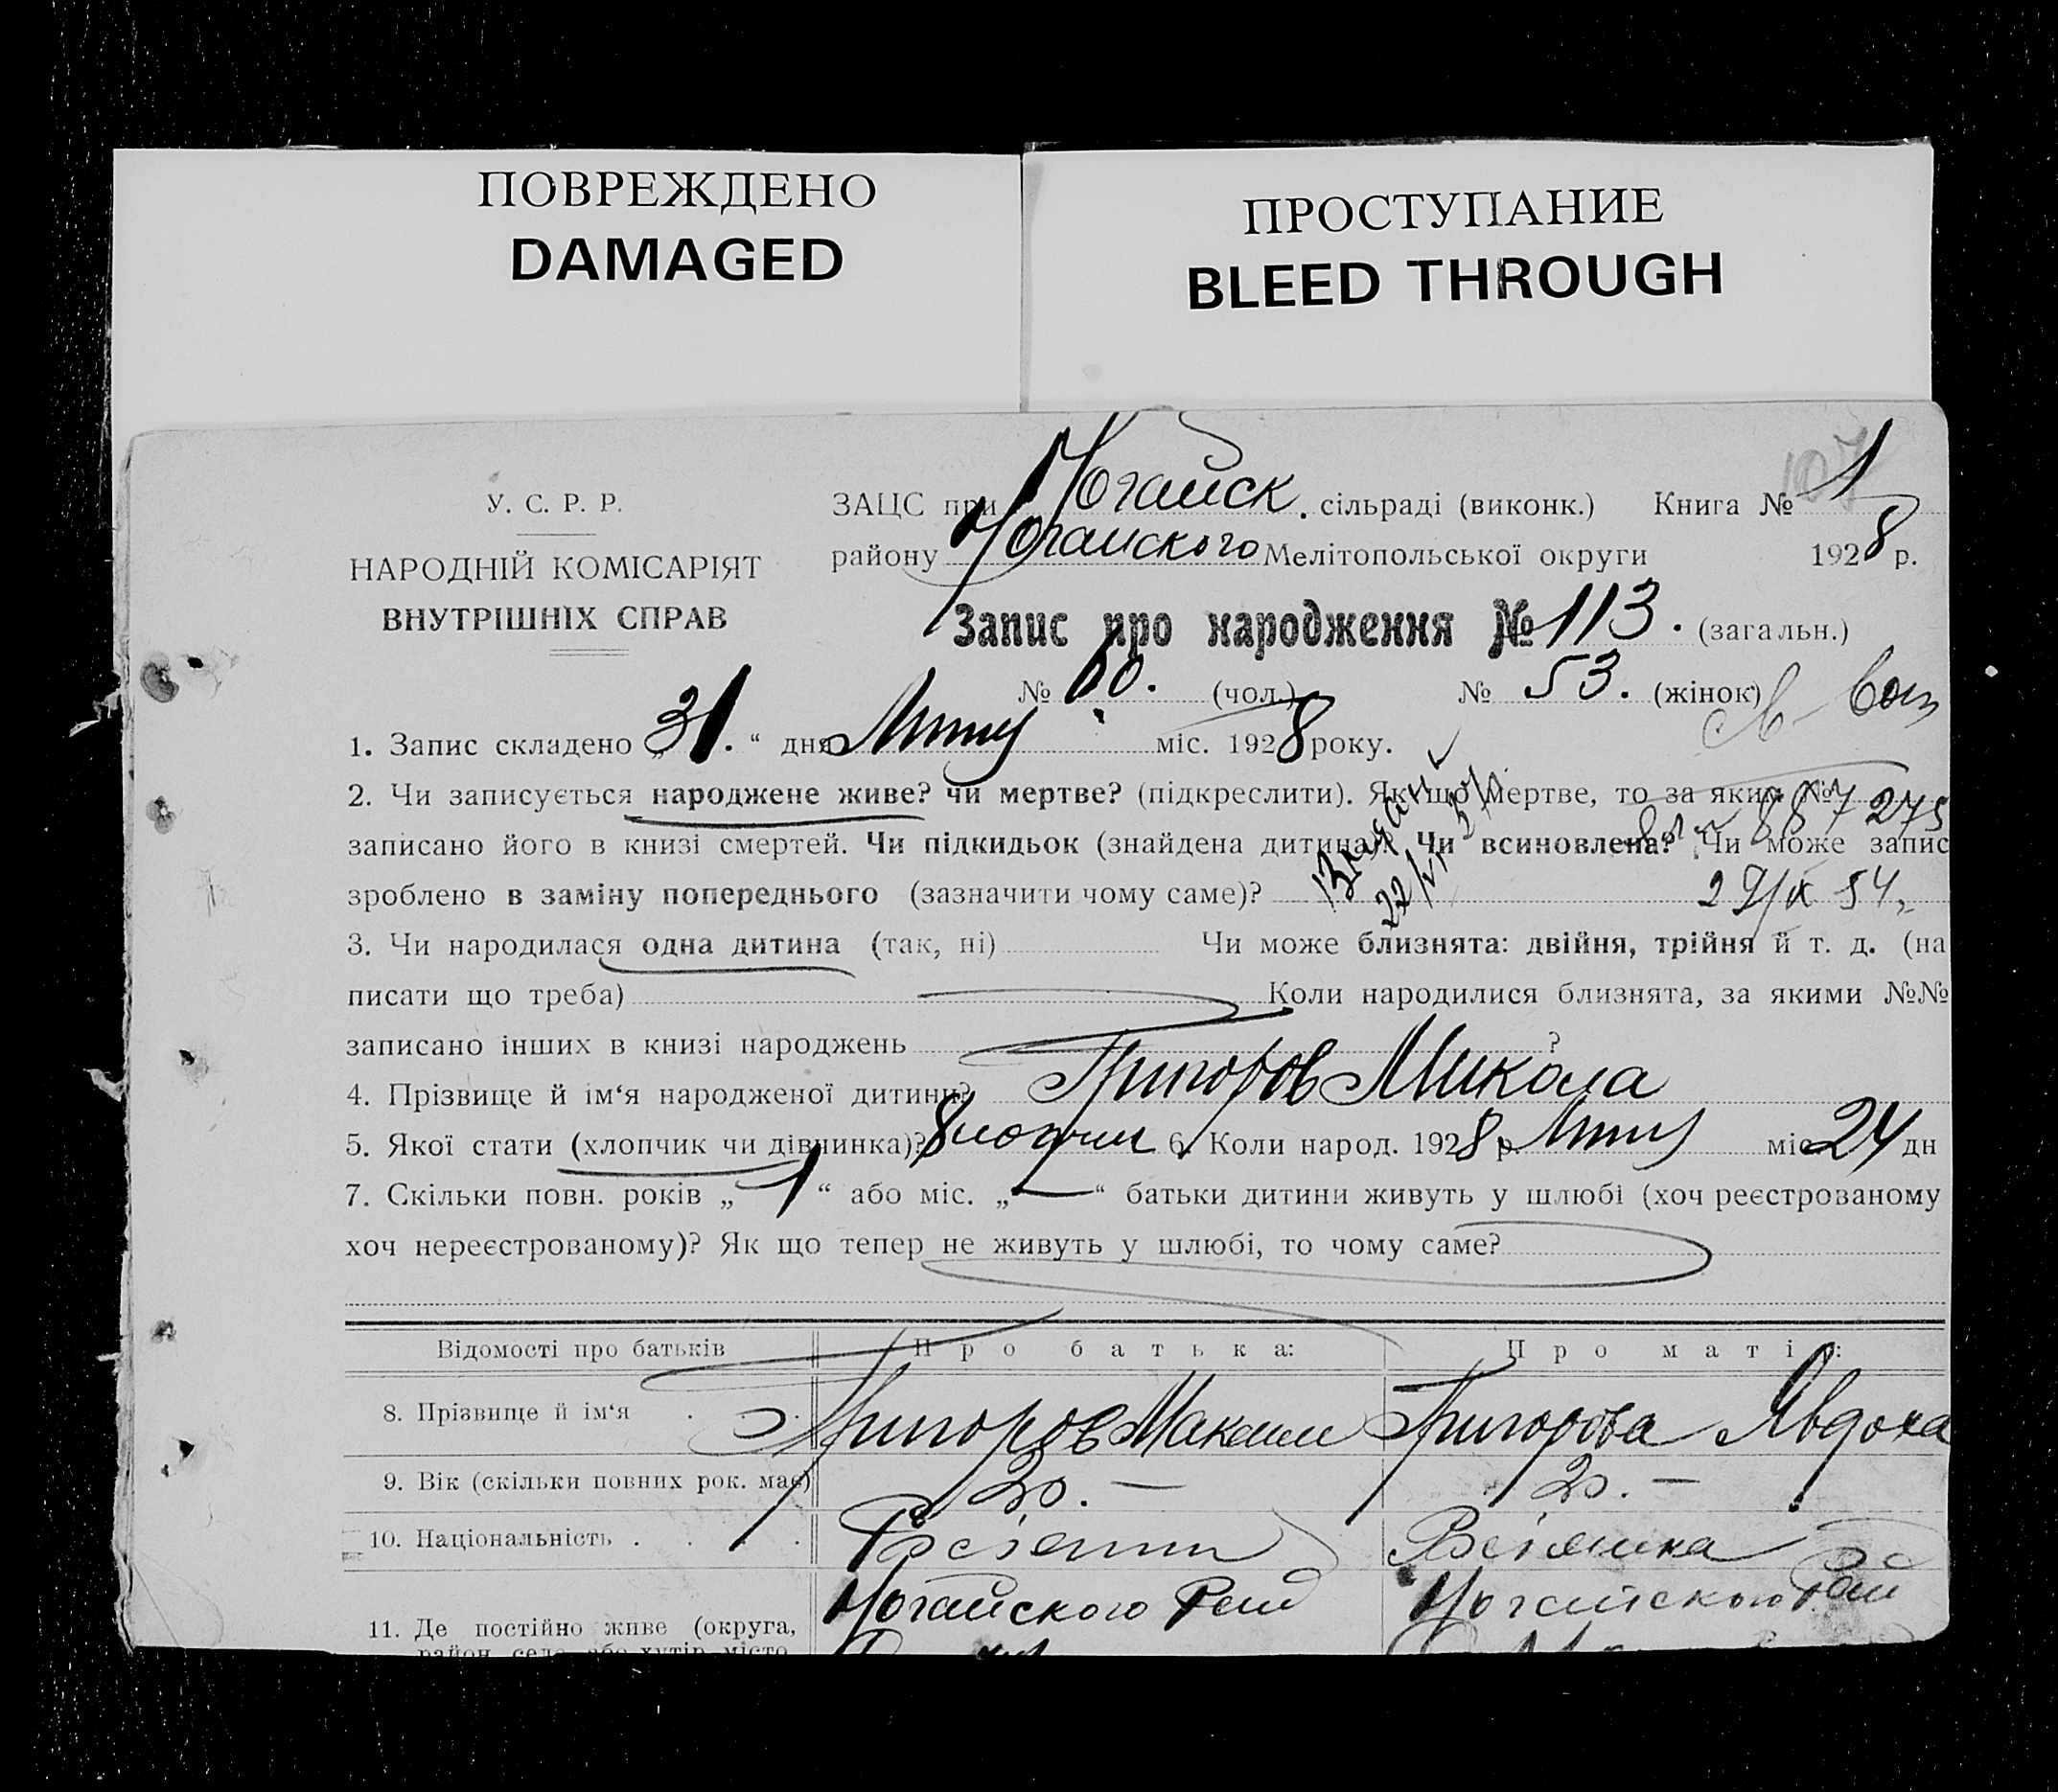 ПОВРЕЖДЕНО
DAMAGED
ПРОСТУПАНИЕ
BLEED THROUGH
У. С. Р. Р.
НАРОДНІЙ КОМІСАРІЯТ
ВНУТРІШНІХ СПРАВ
ЗАЦС при Ногайск. сільраді (виконк.) Книга № 1
району Ногайского Мелітопольської округи 1928 р.
Запис про народження № 113. (загальн.)
№ 60. (чол.) № 53. (жінок)
1. Запис складено „31.“ дня міс. 1928 року.
2. Чи записується народжене живе? чи мертве? (підкреслити). Як що мертве, то за яким №
887275
записано його в книзі смертей. Чи підкидьок (знайдена дитина)? Чи всиновлена? Чи може запис
зроблено в заміну попереднього (зазначити чому саме)?
3. Чи народилася одна дитина (так, ні) Чи може близнята: двійня, трійня й т. д. (на
писати що треба) Коли народилися близнята, за якими №№
записано інших в книзі народжень ?
4. Прізвище й ім‘я народженої дитини? Григоров Микола
5. Якої стати (хлопчик чи дівчинка)? 6. Коли народ. 1928 р. міс 24 дн
7. Скільки повн. років „1“ або міс. „—“ батьки дитини живуть у шлюбі (хоч реєстрованому
хоч нереєстрованому)? Як що тепер не живуть у шлюбі, то чому саме?
Відомості про батьків Про батька: Про матір:
8. Прізвище й ім‘я Григоров Максим Григорова Явдоха
9. Вік (скільки повних рок. має) 20. — 20. —
10. Національність
11. Де постійно живе (округа, Ногайського Рай
район, село або хутір, місто